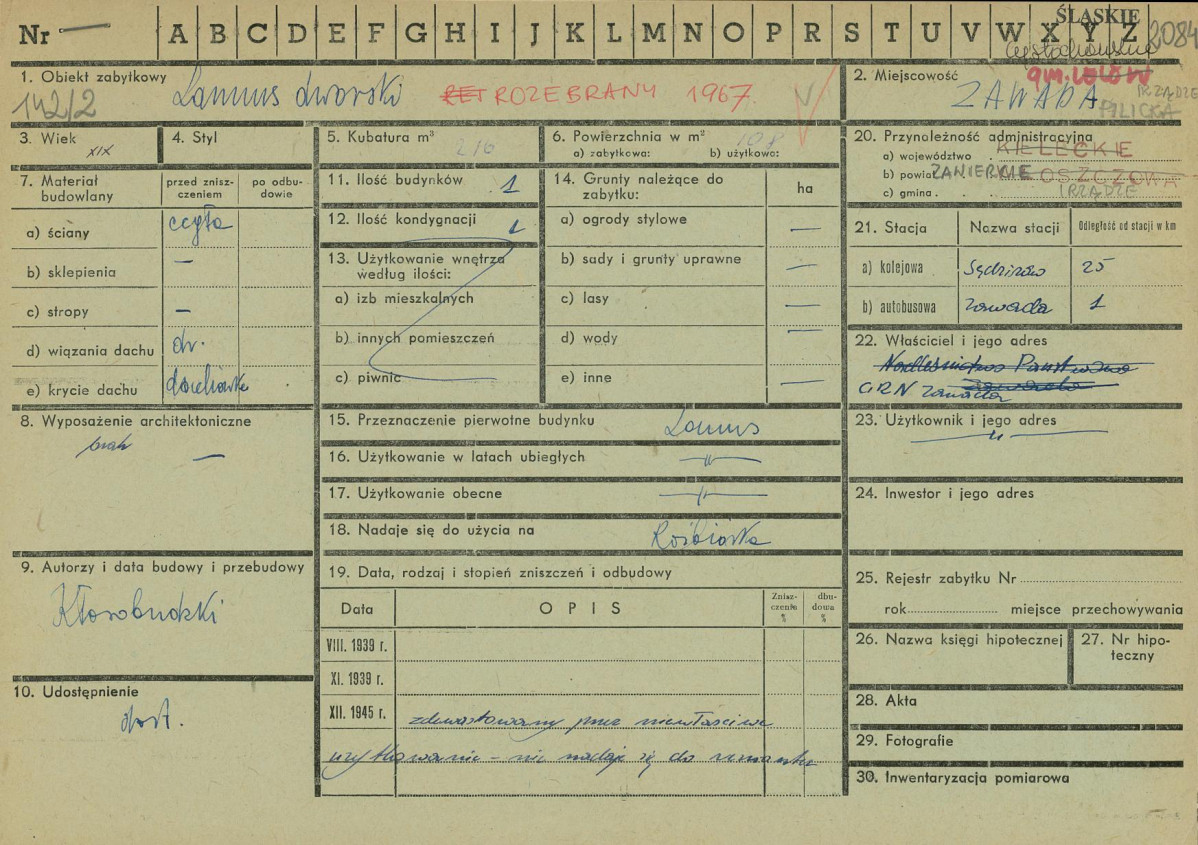 Nr A B C D E F G H I J K L M N O P R S T U V W X Y Z ŚLĄSKIE 2084
Częstochowskie
1. Obiekt zabytkowy
142/2 Lamus dworski ROZEBRANY 1967 V
2. Miejscowość gm. LELÓW IRZĄDZE
ZAWADA PILICKA
3. Wiek XIX
4. Styl
5. Kubatura m³ 216
6. Powierzchnia w m² 108
a) zabytkowa: b) użytkowa:
7. Materiał budowlany
przed zniszczeniem
po odbudowie
a) ściany cegła
b) sklepienia —
c) stropy —
d) wiązania dachu dr.
e) krycie dachu dachówka
8. Wyposażenie architektoniczne
brak —
9. Autorzy i data budowy i przebudowy
Kłosobudzki
10. Udostępnienie
dost.
11. Ilość budynków 1
12. Ilość kondygnacji 1
13. Użytkowanie wnętrza
według ilości:
a) izb mieszkalnych
b) innych pomieszczeń
c) piwnic
14. Grunty należące do
zabytku:
ha
a) ogrody stylowe —
b) sady i grunty uprawne —
c) lasy —
d) wody —
e) inne —
15. Przeznaczenie pierwotne budynku Lamus
16. Użytkowanie w latach ubiegłych —"—
17. Użytkowanie obecne —"—
18. Nadaje się do użycia na Rozbiórka
19. Data, rodzaj i stopień zniszczeń i odbudowy
Data OPIS Zniszczenie % dbudowa %
VIII. 1939 r.
XI. 1939 r.
XII. 1945 r. zdewastowany przez niewłaściwe
użytkowanie – nie nadaje się do remontu
20. Przynależność administracyjna
a) województwo KIELECKIE
b) powiat ZAWIERCIE WŁOSZCZOWA
c) gmina IRZĄDZE
21. Stacja Nazwa stacji Odległość od stacji w km
a) kolejowa Sędziszów 25
b) autobusowa Zawada 1
22. Właściciel i jego adres
Nadleśnictwo Państwowe
GRN Zawada
23. Użytkownik i jego adres
—"—
24. Inwestor i jego adres
25. Rejestr zabytku Nr
rok miejsce przechowywania
26. Nazwa księgi hipotecznej
27. Nr hipoteczny
28. Akta
29. Fotografie
30. Inwentaryzacja pomiarowa